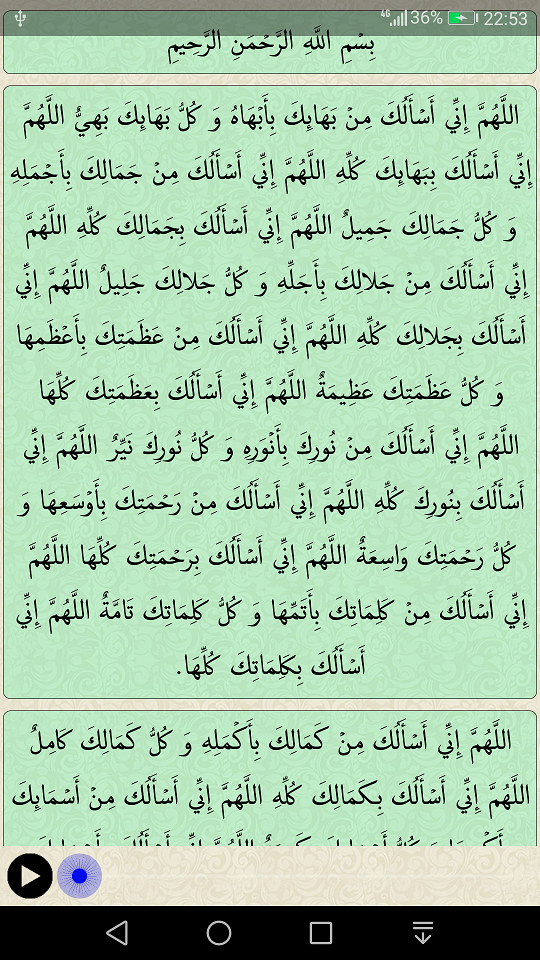 4G 36% 22:53
بِسْمِ اللَّهِ الرَّحْمَنِ الرَّحِيمِ
اللَّهُمَّ إِنِّي أَسْأَلُكَ مِنْ بَهَائِكَ بِأَبْهَاهُ وَ كُلُّ بَهَائِكَ بَهِيٌّ اللَّهُمَّ
إِنِّي أَسْأَلُكَ بِبَهَائِكَ كُلِّهِ اللَّهُمَّ إِنِّي أَسْأَلُكَ مِنْ جَمَالِكَ بِأَجْمَلِهِ
وَ كُلُّ جَمَالِكَ جَمِيلٌ اللَّهُمَّ إِنِّي أَسْأَلُكَ بِجَمَالِكَ كُلِّهِ اللَّهُمَّ
إِنِّي أَسْأَلُكَ مِنْ جَلالِكَ بِأَجَلِّهِ وَ كُلُّ جَلالِكَ جَلِيلٌ اللَّهُمَّ إِنِّي
أَسْأَلُكَ بِجَلالِكَ كُلِّهِ اللَّهُمَّ إِنِّي أَسْأَلُكَ مِنْ عَظَمَتِكَ بِأَعْظَمِهَا
وَ كُلُّ عَظَمَتِكَ عَظِيمَةٌ اللَّهُمَّ إِنِّي أَسْأَلُكَ بِعَظَمَتِكَ كُلِّهَا
اللَّهُمَّ إِنِّي أَسْأَلُكَ مِنْ نُورِكَ بِأَنْوَرِهِ وَ كُلُّ نُورِكَ نَيِّرٌ اللَّهُمَّ إِنِّي
أَسْأَلُكَ بِنُورِكَ كُلِّهِ اللَّهُمَّ إِنِّي أَسْأَلُكَ مِنْ رَحْمَتِكَ بِأَوْسَعِهَا وَ
كُلُّ رَحْمَتِكَ وَاسِعَةٌ اللَّهُمَّ إِنِّي أَسْأَلُكَ بِرَحْمَتِكَ كُلِّهَا اللَّهُمَّ
إِنِّي أَسْأَلُكَ مِنْ كَلِمَاتِكَ بِأَتَمِّهَا وَ كُلُّ كَلِمَاتِكَ تَامَّةٌ اللَّهُمَّ إِنِّي
أَسْأَلُكَ بِكَلِمَاتِكَ كُلِّهَا.
اللَّهُمَّ إِنِّي أَسْأَلُكَ مِنْ كَمَالِكَ بِأَكْمَلِهِ وَ كُلُّ كَمَالِكَ كَامِلٌ
اللَّهُمَّ إِنِّي أَسْأَلُكَ بِكَمَالِكَ كُلِّهِ اللَّهُمَّ إِنِّي أَسْأَلُكَ مِنْ أَسْمَائِكَ